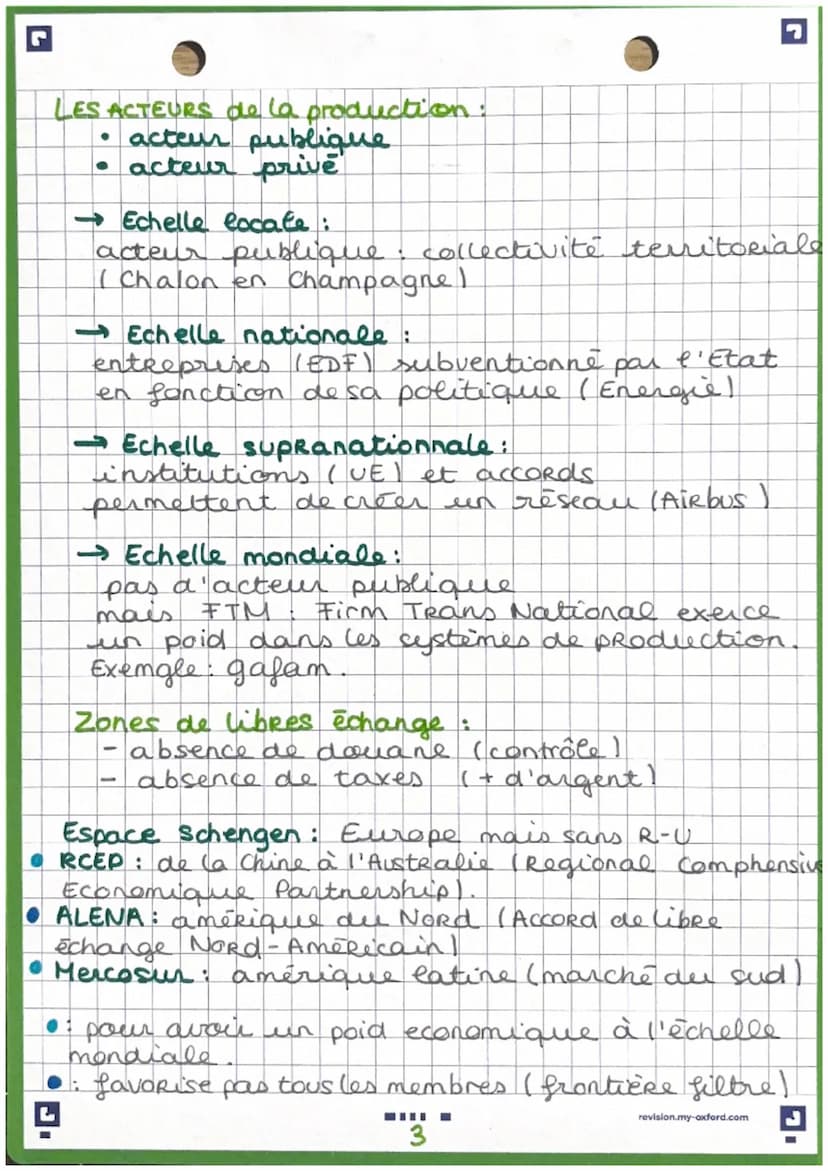 LES ACTEURS de la production :
• acteur publique
• acteur privé
→ Echelle locale :
acteur publique : collectivité territoriale
(Chalon en Champagne)
→ Echelle nationale :
entreprises (EDF) subventionné par l'Etat
en fonction de sa politique (Energie)
→ Echelle supranationnale :
institutions (UE) et accords
permettent de créer un réseau (Airbus)
→ Echelle mondiale :
pas d'acteur publique
mais FTM : Firm Trans National exerce
un poid dans les systèmes de production.
Exemgle : gafam.
Zones de libres échange :
- absence de douane (contrôle)
- absence de taxes (+ d'argent)
Espace Schengen : Europe mais sans R-U
• RCEP : de la Chine à l'Australie (Regional Comphensive
Economique Partnership).
• ALENA : amérique du Nord (Accord de libre
échange Nord-Américain)
• Mercosur : amérique latine (marché du sud)
• : pour avoir un poid economique à l'échelle
mondiale.
• : favorise pas tous les membres (frontière filtre)
revision.my-oxford.com
3